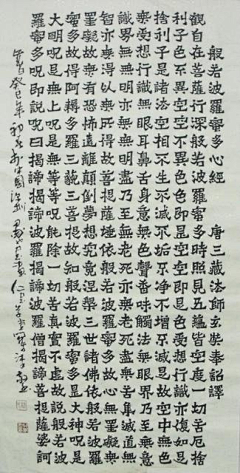 般若波羅蜜多心經 唐三藏法師玄奘奉詔譯
觀自在菩薩行深般若波羅蜜多時照見五蘊皆空度一切苦厄捨
利子色不異空空不異色色即是空空即是色受想行識亦復如是
捨利子是諸法空相不生不滅不垢不淨不增不減是故空中無色
無受想行識無眼耳鼻舌身意無色聲香味觸法無眼界乃至無意
識界無無明亦無無明盡乃至無老死亦無老死盡無苦集滅道無
智亦無得以無所得故菩提薩埵依般若波羅蜜多故心無罣礙無
罣礙故無有恐怖遠離顛倒夢想究竟涅槃三世諸佛依般若波羅
蜜多故得阿耨多羅三藐三菩提故知般若波羅蜜多是大神呪是
大明呪是無上呪是無等等呪能除一切苦真實不虛故說般若波
羅蜜多呪即說呪曰揭諦揭諦波羅揭諦波羅僧揭諦菩提薩婆訶
癸巳年初冬於中國深圳